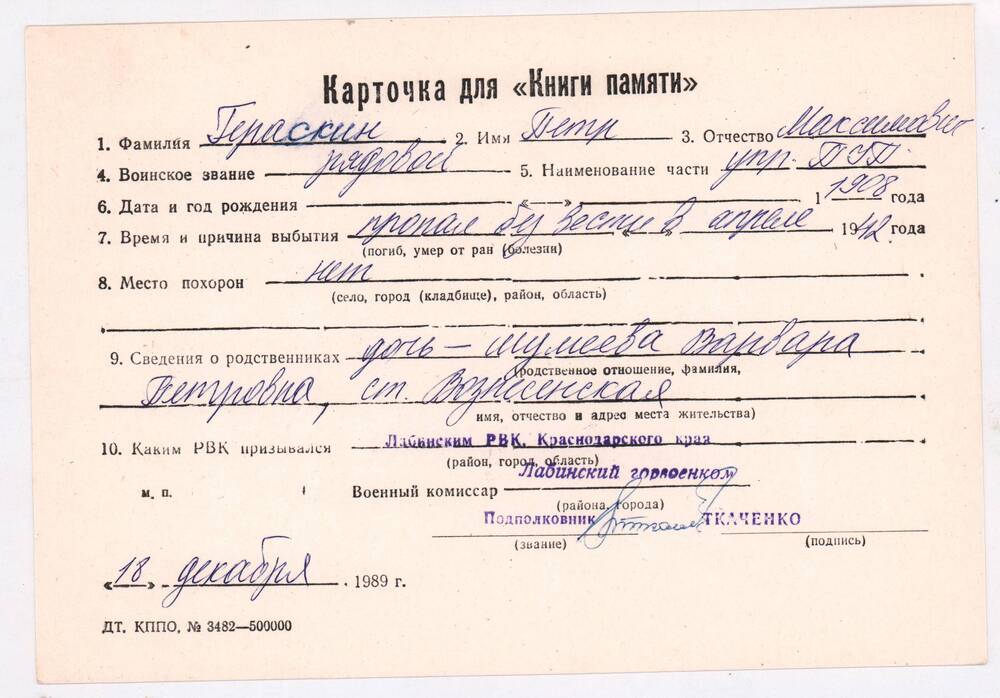 Карточка для «Книги памяти»
1. Фамилия Гераскин 2. Имя Петр 3. Отчество Максимович
4. Воинское звание рядовой 5. Наименование части упр.
6. Дата и год рождения « » 1 1908 года
7. Время и причина выбытия пропал без вести в апреле 1942 года
(погиб, умер от ран (болезни)
8. Место похорон нет
(село, город (кладбище), район, область)
9. Сведения о родственниках дочь – Шумеева Варвара
(родственное отношение, фамилия,
Петровна, ст. Вознесенская
имя, отчество и адрес места жительства)
10. Каким РВК призывался Лабинским РВК, Краснодарского края
(район, город, область)
м. п. Военный комиссар Лабинский горвоенком
(района, города)
Подполковник ТКАЧЕНКО
(звание) (подпись)
«18» декабря 1989 г.
ДТ. КППО, № 3482—500000